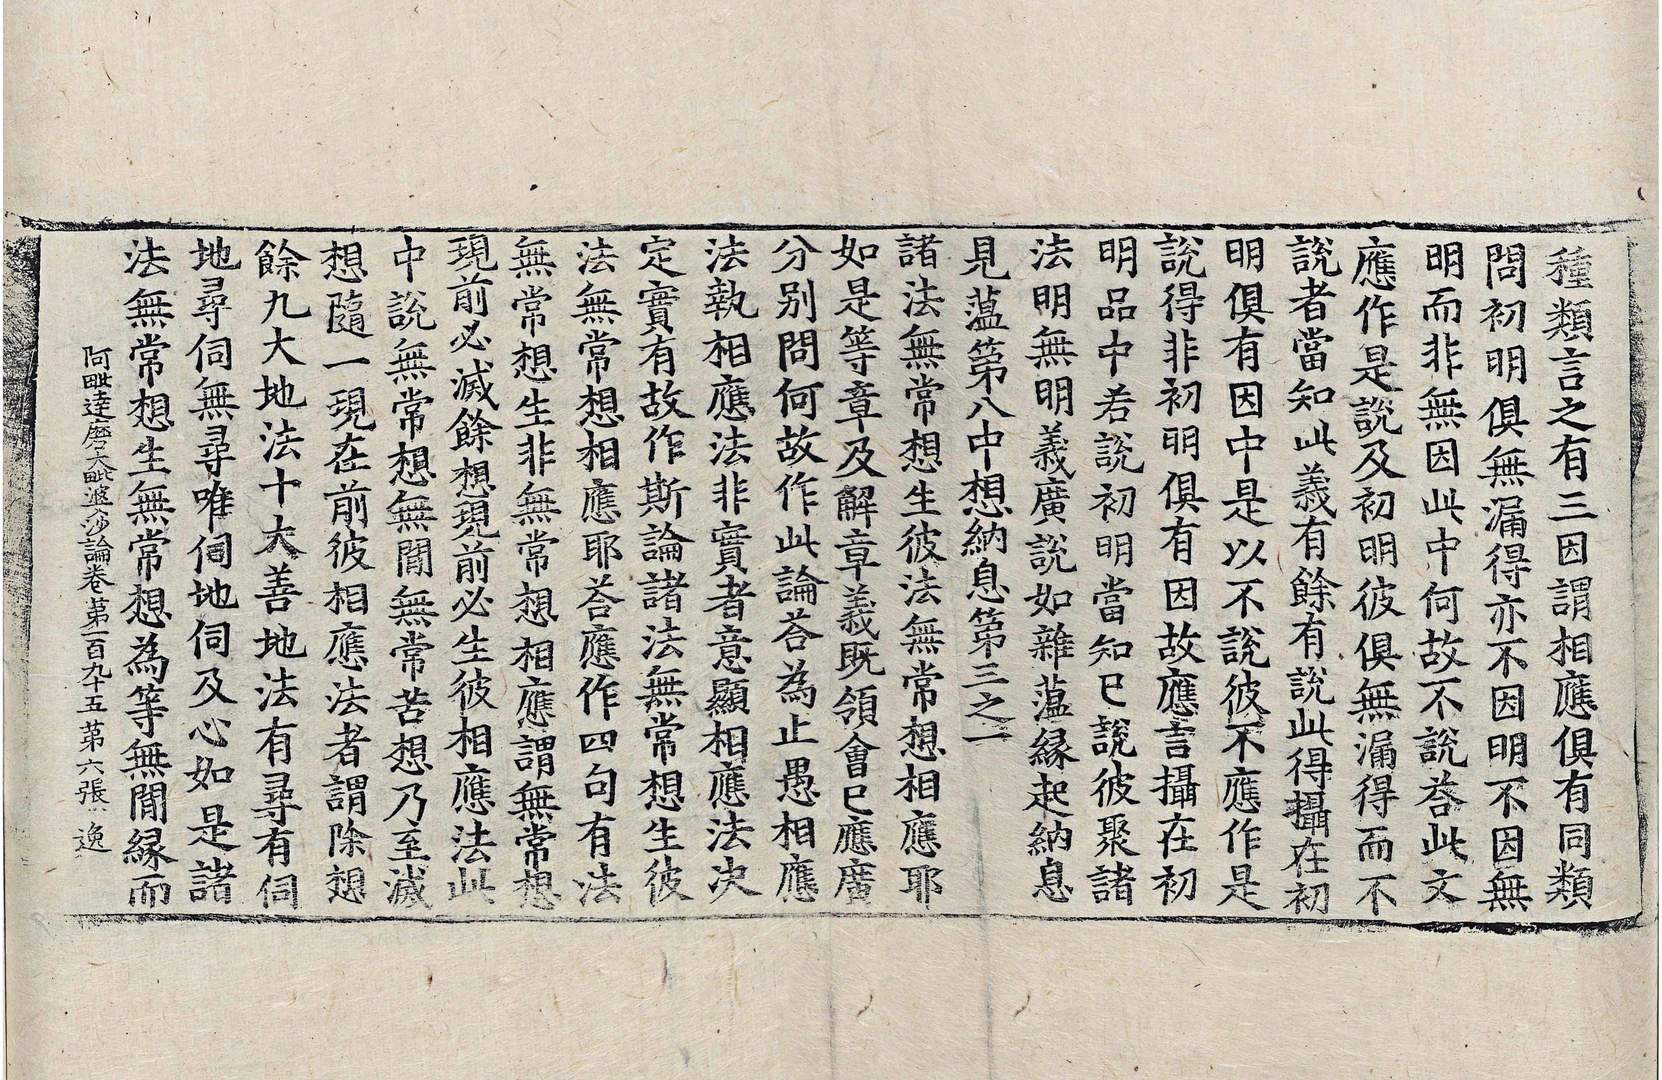 種類言之有三因謂相應俱有同類
問初明俱無漏得亦不因明不因無
明而非無因此中何故不說荅此文
應作是說及初明彼俱無漏得而不
說者當知此義有餘有說此得攝在初
明俱有因中是以不說彼不應作是
說得非初明俱有因故應言攝在初
明品中若說初明當知已說彼聚諸
法明無明義廣說如雜蕰緣起納息
見蕰第八中想納息第三之一
諸法無常想生彼法無常想相應耶
如是等章及解章義旣領會已應廣
分别問何故作此論荅為止愚相應
法執相應法非實者意顯相應法决
定實有故作斯論諸法無常想生彼
法無常想相應耶荅應作四句有法
無常想生非無常想相應謂無常想
現前必滅餘想現前必生彼相應法此
中說無常想無間無常苦想乃至滅
想隨一現在前彼相應法者謂除想
餘九大地法十大善地法有尋有伺
地尋伺無尋唯伺地伺及心如是諸
法無常想生無常想為等無間緣而
阿毗達磨大毗婆沙論卷第一百九十五 第六張 逸